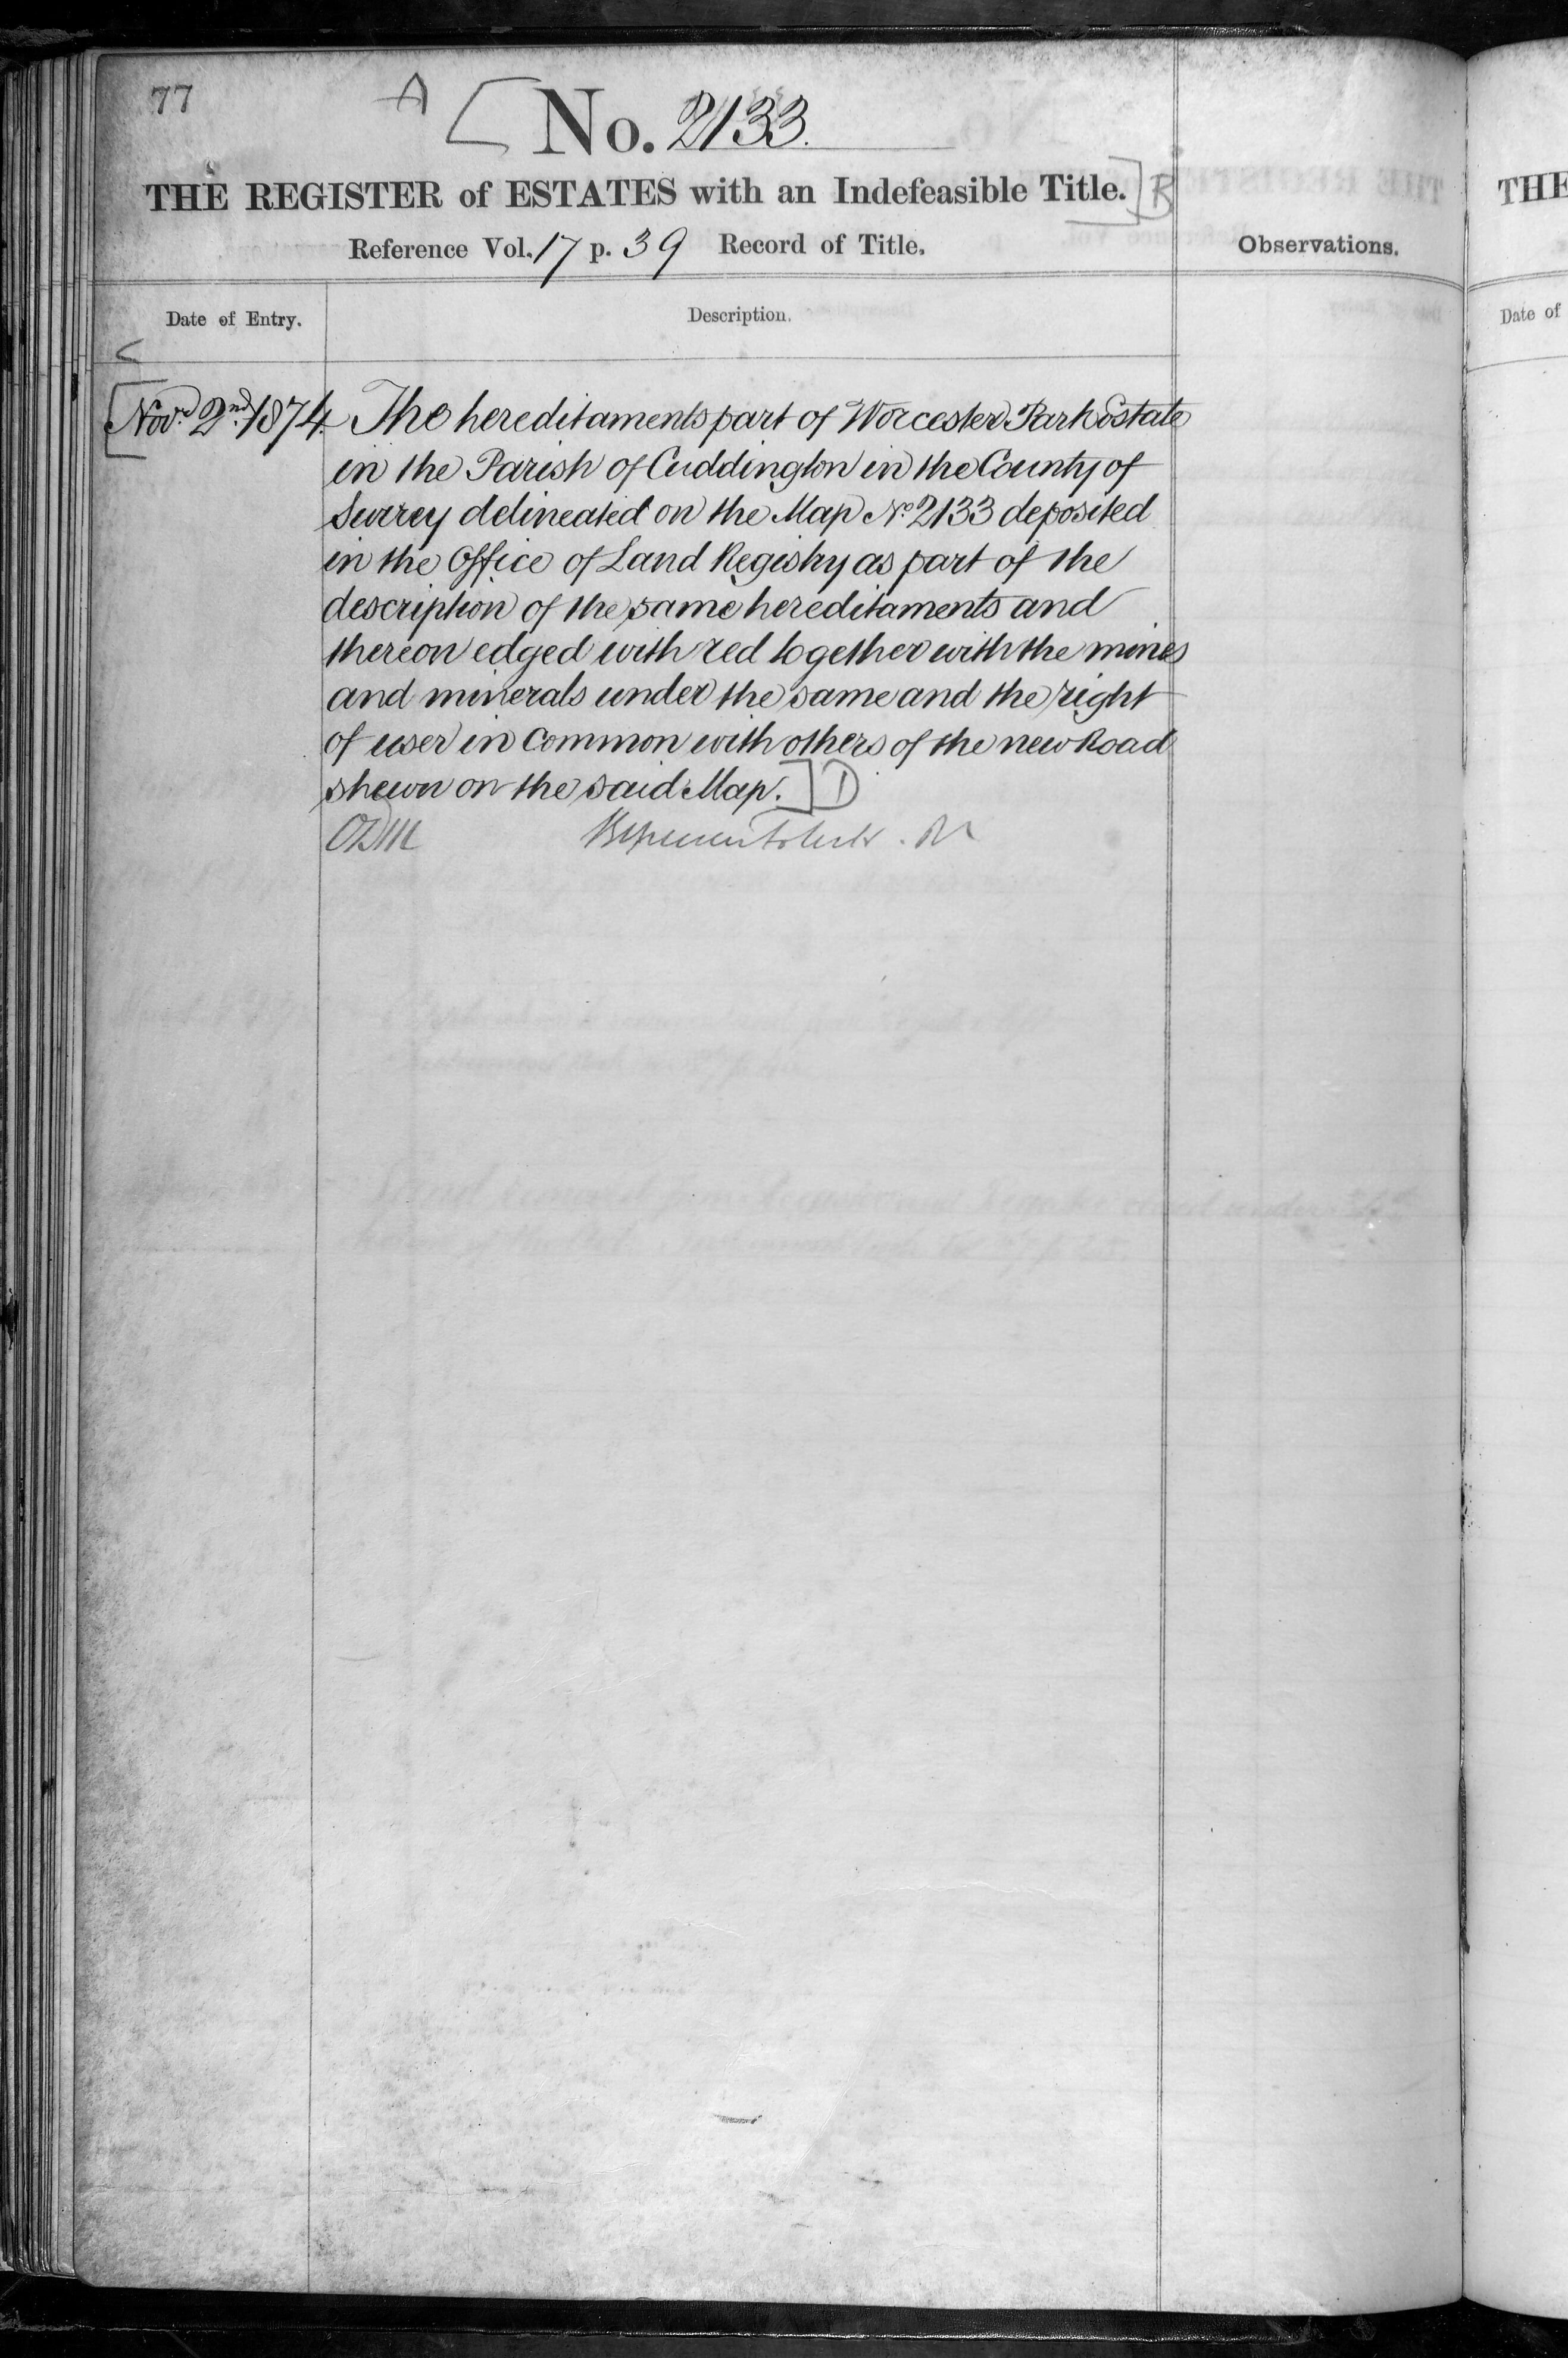 77
A [ No. 2133.
THE REGISTER of ESTATES with an Indefeasible Title. ] B
Reference Vol. 17 p. 39 Record of Title.
Observations.
Date of Entry.
Description.
C
[ Novr. 2nd. 1874. The hereditaments part of Worcester Park Estate
in the Parish of Cuddington in the County of
Surrey delineated on the Map No. 2133 deposited
in the Office of Land Registry as part of the
description of the same hereditaments and
thereon edged with red together with the mines
and minerals under the same and the right
of user in common with others of the new Road
shewn on the said Map. ] D
THE
Date of